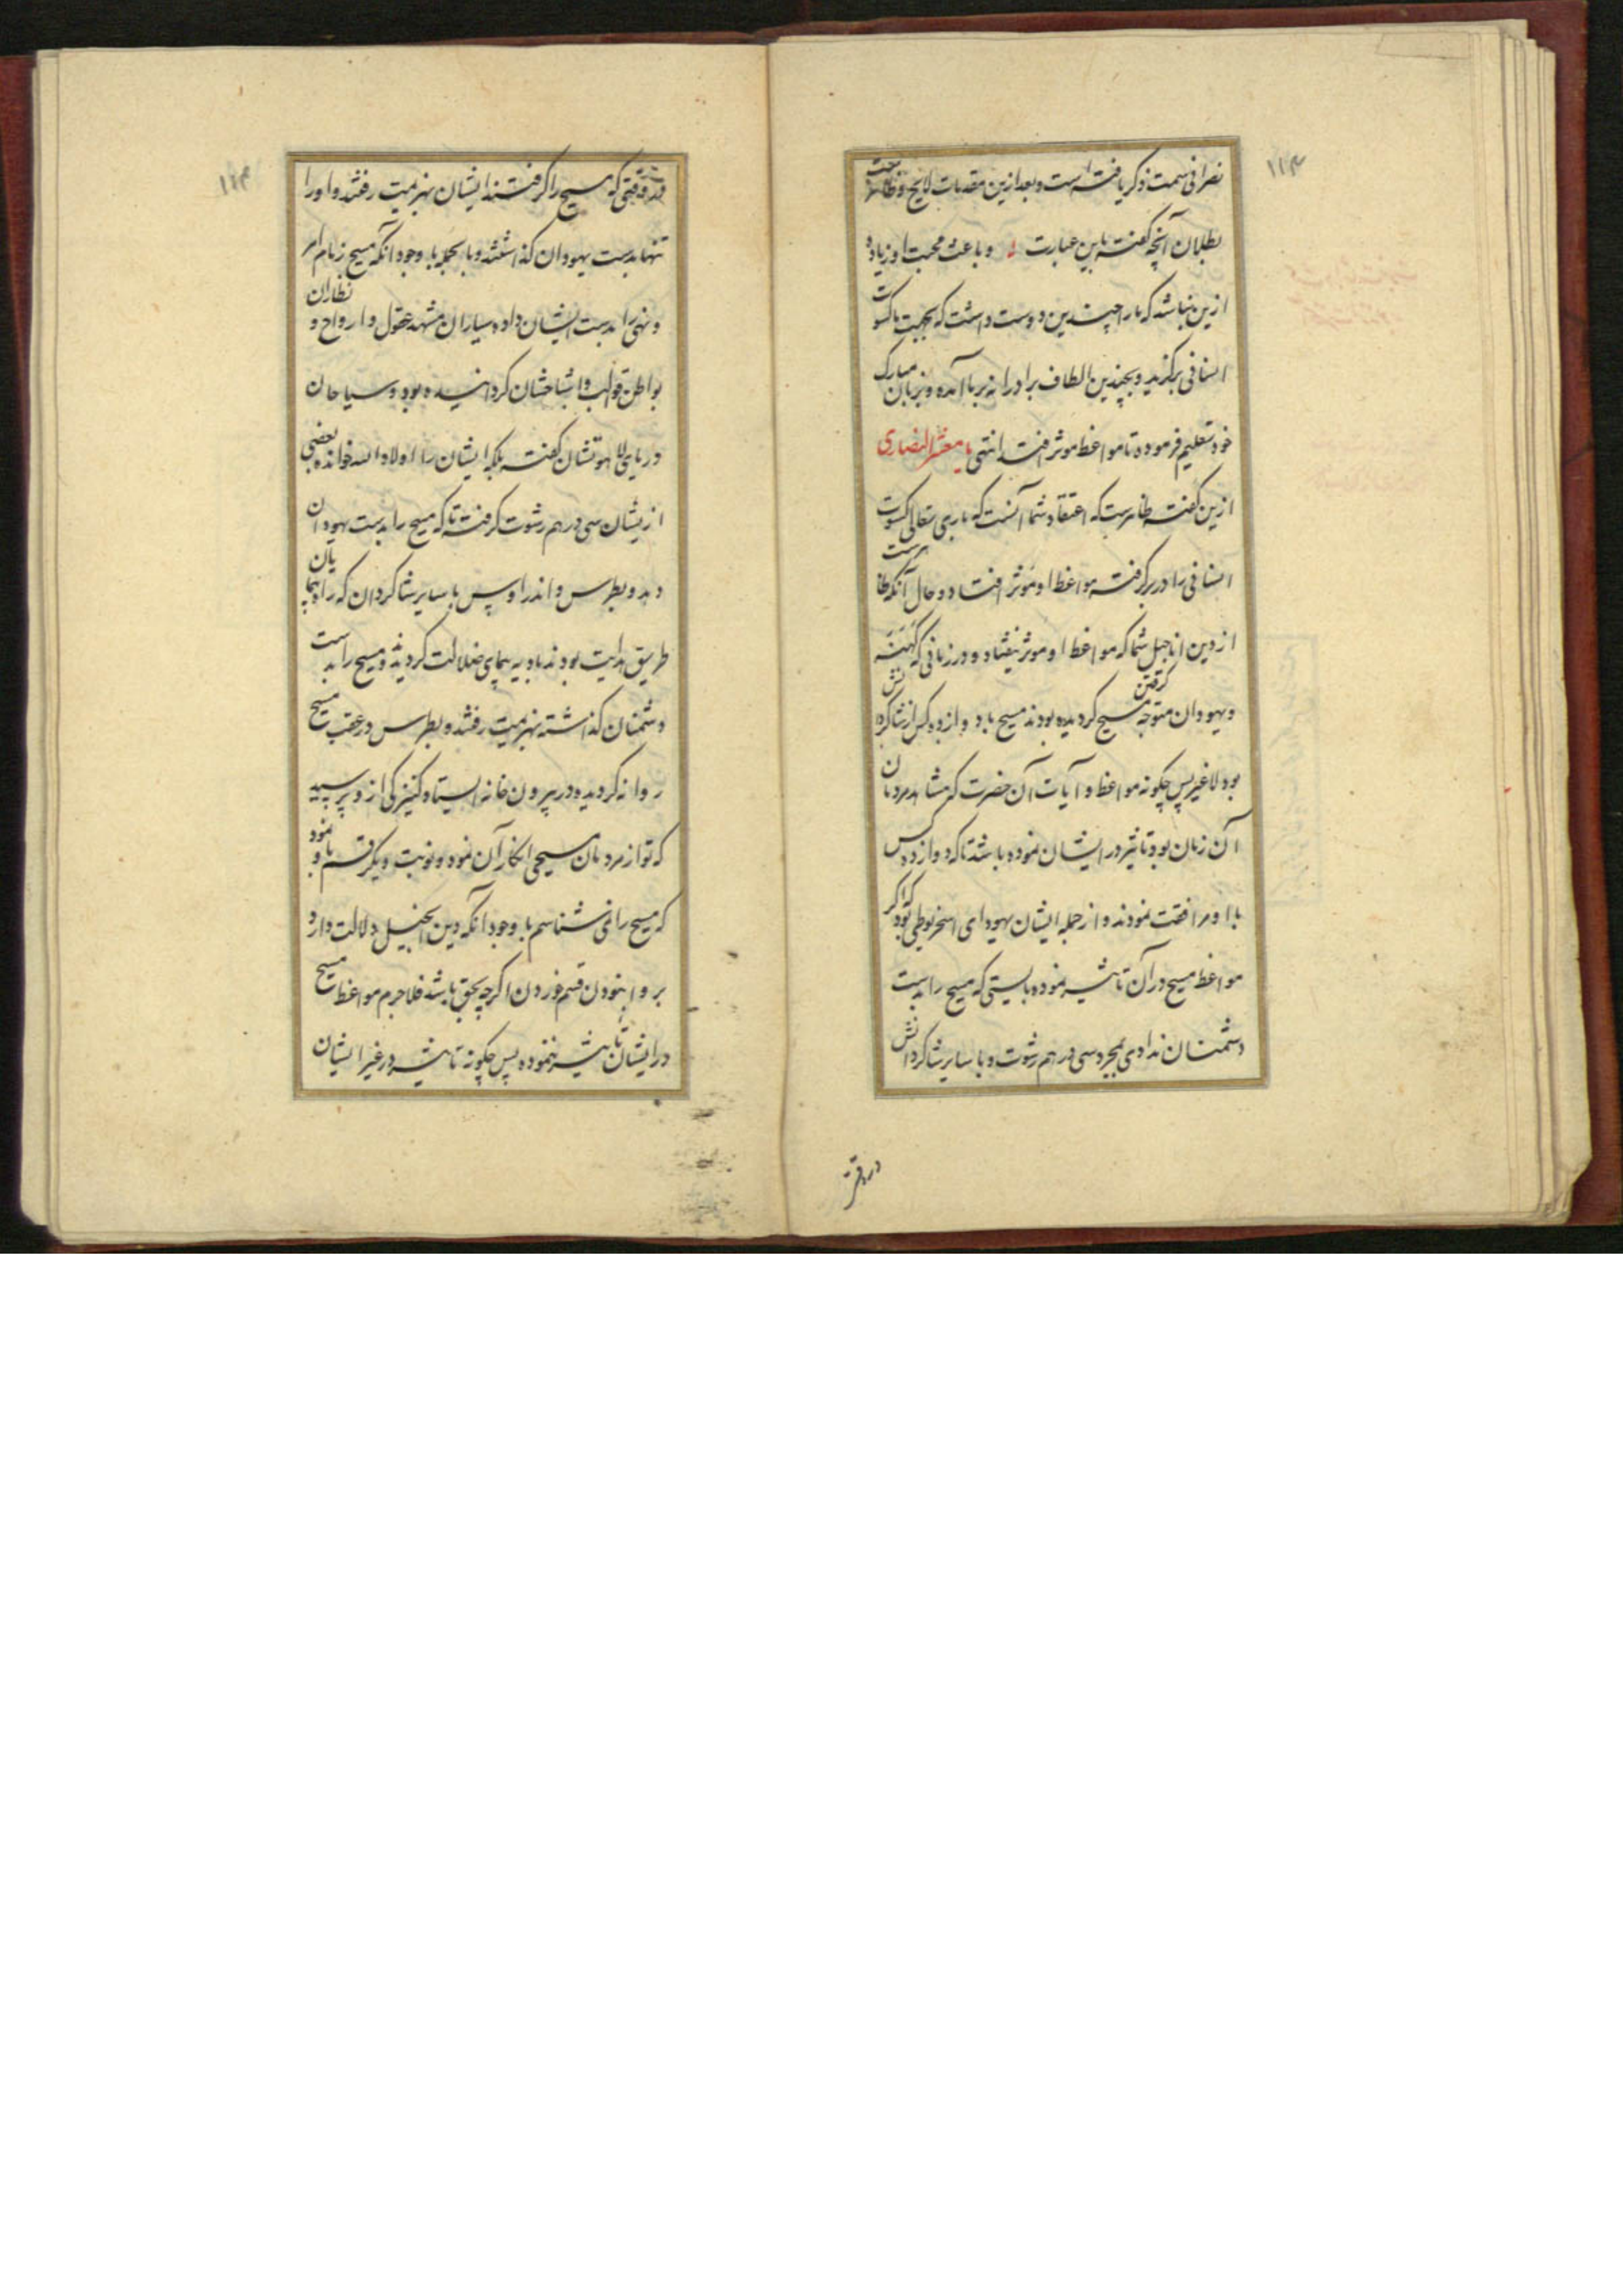 ۱۱۳
نصرانی سمت ذکر یافته است و بعد ازین مقدمات لایح و ظاهر
بطلان آنچه گفته باین عبارت و باعث محبت او زیاده
ازین نباشد که ما را چندین دوست داشت که بجهت ما کسوت
انسانی برگزید و بچندین الطاف برادرانه بر ما آمده و بزبان مبارک
خود تعلیم فرموده تا مواعظ موثر افتد انتهی یا معشر النصاری
ازین گفته ظاهرست که اعتقاد شما آنست که باری تعالی کسوت
انسانی را در بر گرفته مواعظ او موثر افتاد و حال آنکه ظاهرست
از دین اناجیل شما که مواعظ او موثر نیفتاد و در زمانی که کهنه
و یهودان متوجه گرفتن مسیح گردیده بودند مسیح با دوازده کس از شاگردانش
بود لاغیر پس چگونه مواعظ و آیات آن حضرت که مشاهد مردمان
آن زمان بود تاثیر در ایشان نموده باشد تا که دوازده کس
با او مرافقت نمودند و از جمله ایشان یهودای اسخریوطی بود که اگر
مواعظ مسیح در آن تاثیر نموده بایستی که مسیح را بدست
دشمنان ندادی بمجرد سی درهم رشوت و با سایر شاگردانش
در وقتی
۱۱۴
در وقتی که مسیح را گرفتند ایشان بهزیمت رفتند و او را
تنها بدست یهودان گذاشتند و بالجمله با وجود آنکه مسیح زمام امر
و نهی را بدست ایشان داده و سیاران مشهد عقول و ارواح و نظاران
بواطن قوالب و اشباحشان گردانیده بود و سیاحان
دریای لاهوتشان گفته بلکه ایشان را اولاد الله خوانده بعضی
ازیشان سی درهم رشوت گرفته تا که مسیح را بدست یهودان
دهد و بطرس و اندراوس با سایر شاگردان که راه پیمایان
طریق هدایت بودند بادیه پیمای ضلالت گردیدند و مسیح را بدست
دشمنان گذاشته بهزیمت رفتند و بطرس در عقب مسیح
روانه گردیده در بیرون خانه ایستاد کنیزکی ازو پرسید
که تو از مردمان مسیحی انکار آن نمود و نوبت دیگر قسم یاد نمود
که مسیح را نمی شناسم با وجود آنکه دین انجیل دلالت دارد
بر وا نبودن قسم خوردن اگرچه بحق باشد فلاجرم مواعظ مسیح
در ایشان تاثیر ننموده پس چگونه تاثیر در غیر ایشان